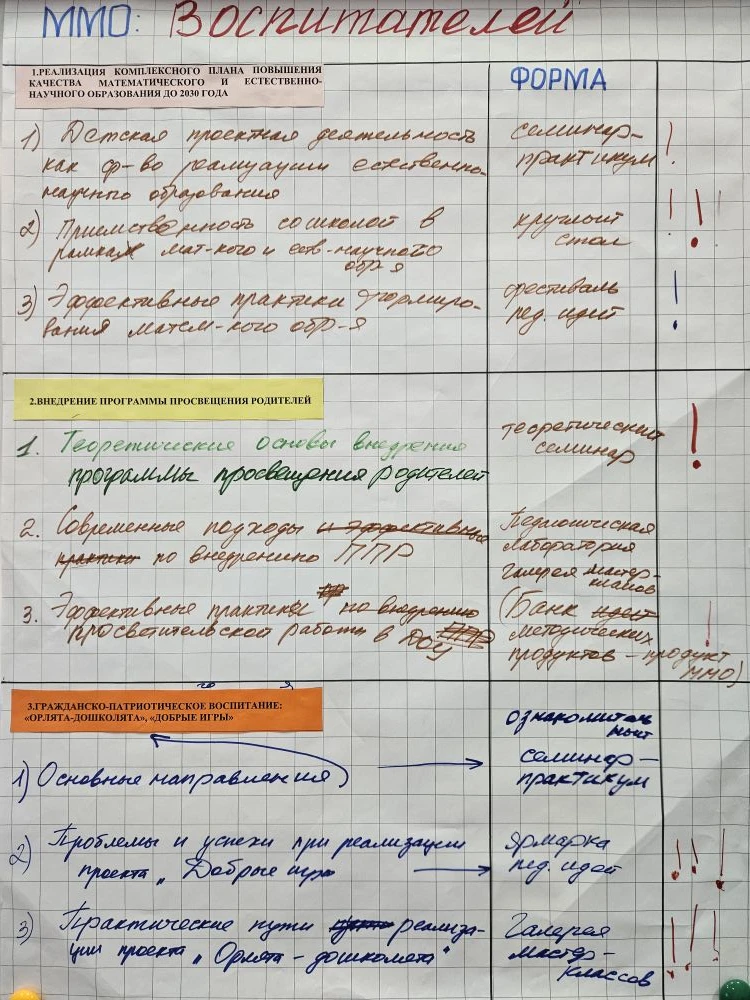 ММО: Воспитателей
1.РЕАЛИЗАЦИЯ КОМПЛЕКСНОГО ПЛАНА ПОВЫШЕНИЯ
КАЧЕСТВА МАТЕМАТИЧЕСКОГО И ЕСТЕСТВЕННО-
НАУЧНОГО ОБРАЗОВАНИЯ ДО 2030 ГОДА
ФОРМА
1) Детская проектная деятельность
как ф-во реализации естественно-
научного образования
семинар-
практикум !
2) Приемственность со школой в
рамках мат-кого и еств-научного
обр-я
круглый !!
стол
3) Эффективные практики формиро-
вания матем-кого обр-я
фестиваль !
пед. идей
2.ВНЕДРЕНИЕ ПРОГРАММЫ ПРОСВЕЩЕНИЯ РОДИТЕЛЕЙ
1. Теоретические основы внедрения
программы просвещения родителей
теоретический !
семинар
2. Современные подходы и эффективные
практики по внедрению ППР
Педагогическая
лаборатория
Галерея мастер-
классов
3. Эффективные практики по внедрению
просветительской работы в ДОУ ППР
(Банк идей !
методических
продуктов – продукт
ММО)
3.ГРАЖДАНСКО-ПАТРИОТИЧЕСКОЕ ВОСПИТАНИЕ:
«ОРЛЯТА-ДОШКОЛЯТА», «ДОБРЫЕ ИГРЫ»
1) Основные направления
ознакомитель
ный
семинар –
практикум
2) Проблемы и успехи при реализации
проекта „Добрые игры
Ярмарка !!!
пед. идей
3) Практические пути пути реализа-
ции проекта „Орлята – дошколята"
Галерея !!!
мастер-
классов